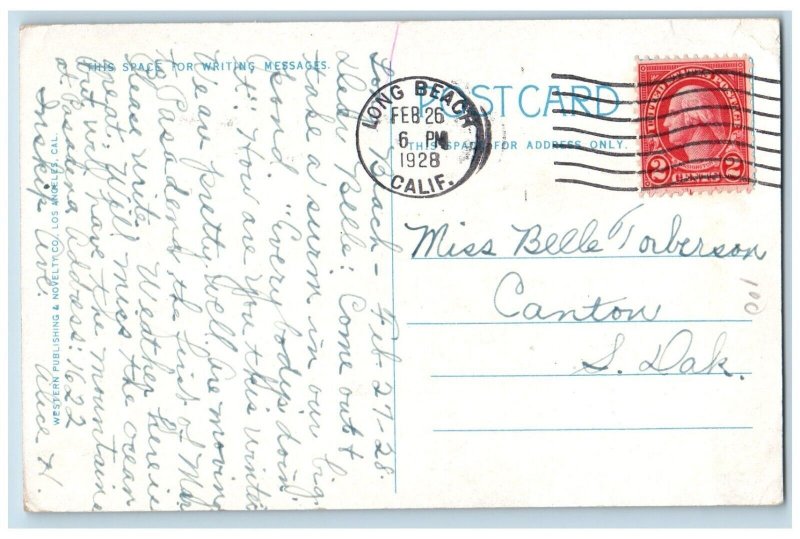 THIS SPACE FOR WRITING MESSAGES.
POST CARD
THIS SPACE FOR ADDRESS ONLY.
LONG BEACH
FEB 26
6 PM
1928
CALIF.
UNITED STATES POSTAGE
2 CENTS 2
Miss Belle Torberson
Canton
S. Dak.
100
Long Beach - Feb. 27-28.
Dear Belle: Come out &
take a swim in our big
pond "Everybody's doin'
it". How are you this winter
We are pretty well. Are moving
to Pasadena the first of Mar
Please write. Weather here is
great. Will miss the ocean
but will have the mountains
at Pasadena Address: 1622
Inskip Ave. Alice H.
WESTERN PUBLISHING & NOVELTY CO., LOS ANGELES, CAL.